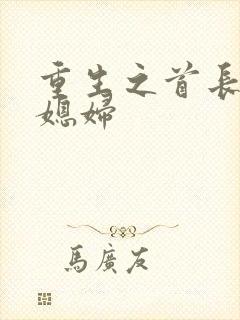 重生之首長
媳婦
馬廣友